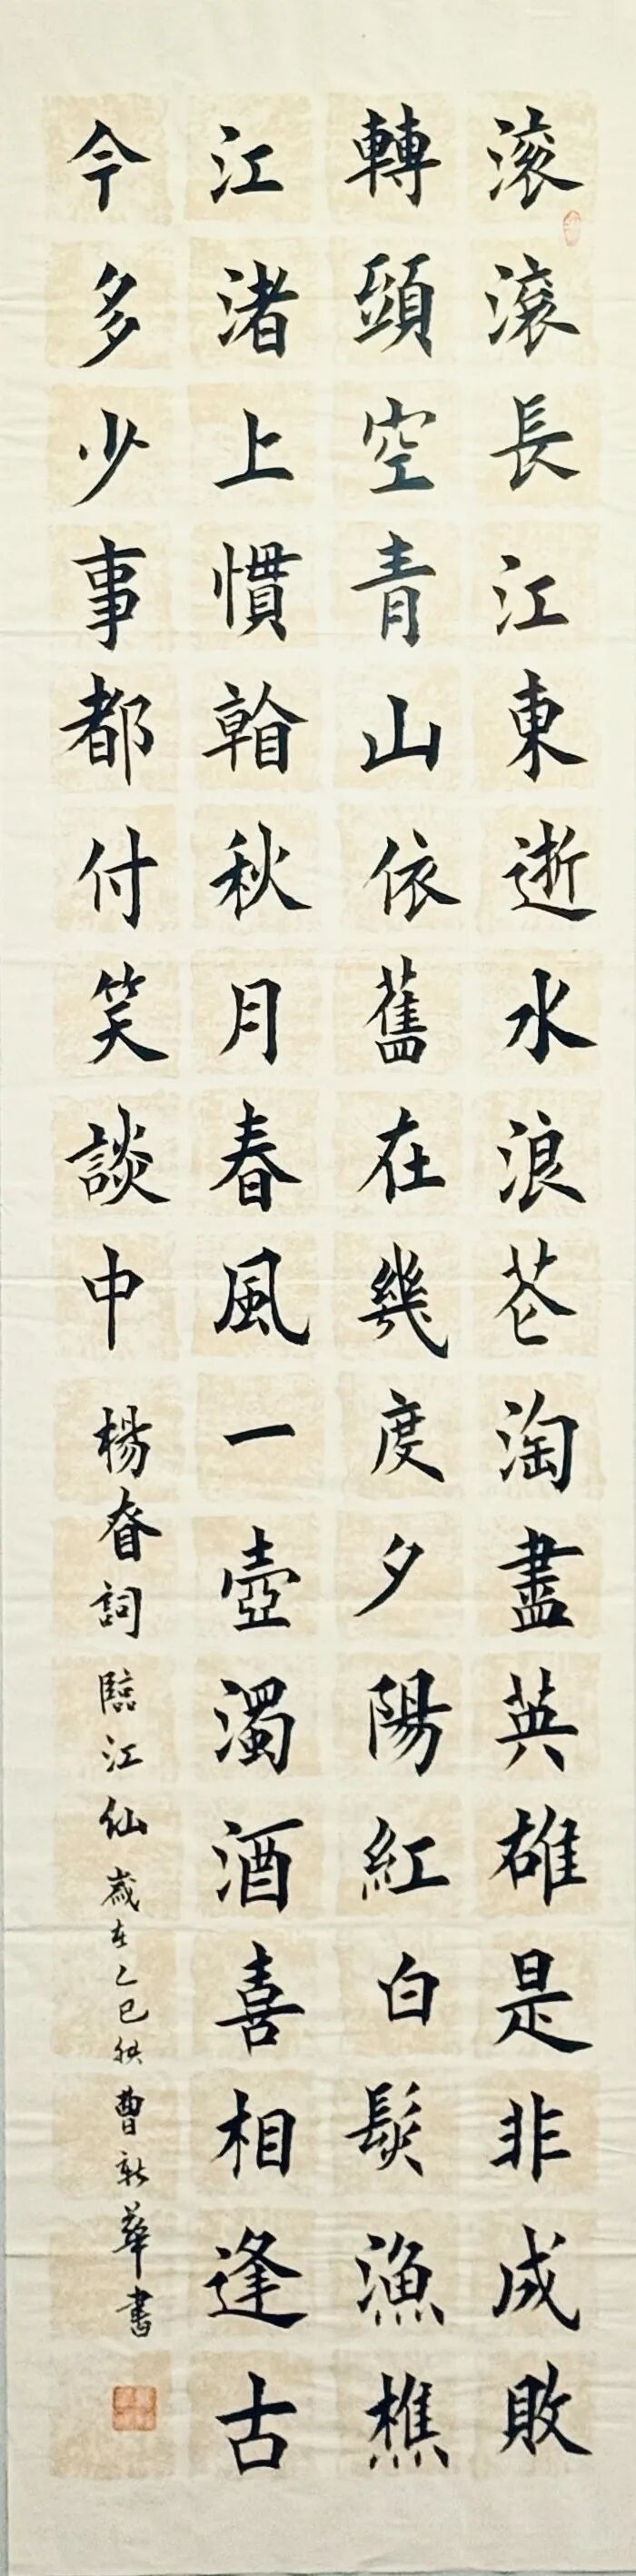 滚滚長江東逝水浪花淘盡英雄是非成敗
轉頭空青山依舊在幾度夕陽紅白髮漁樵
江渚上慣看秋月春風一壺濁酒喜相逢古
今多少事都付笑談中
楊眘詞臨江仙歲在乙巳秋曹新華書